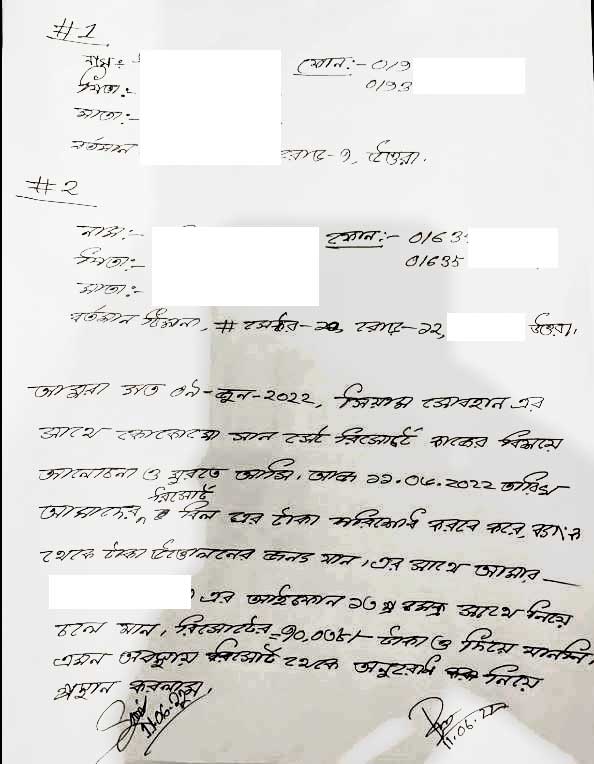 #1
নাম :-
ফোন :- 019
0193
পিতা :-
মাতা :-
বর্তমান রোড-৭, উত্তরা.
#2
নাম :-
ফোন :- 01635
পিতা :-
01635
মাতা :-
বর্তমান ঠিকানা, # সেক্টর-১০, রোড-১২, উত্তরা.
আমরা গত ০৯-জুন-2022, সিয়াম সোবহান এর
সাথে সান সেট রিসোর্টে কাজের বিষয়ে
আলোচনা ও ঘুরতে আসি, আজ ১১.০৬.2022 তারিখ
রিসোর্ট
আমাদের বিল এর টাকা পরিশোধ করবে
থেকে টাকা উত্তোলনের জন্য যান, এর সাথে আমার
এর আইফোন ১৩ প্র সাথে নিয়ে
চলে যান, রিসোর্টের টাকা ও দিয়ে যাননি,
এমন অবস্থায় রিসোর্ট থেকে অনুরোধ নিয়ে
প্রস্থান করলাম,
11.06.22
11.06.22